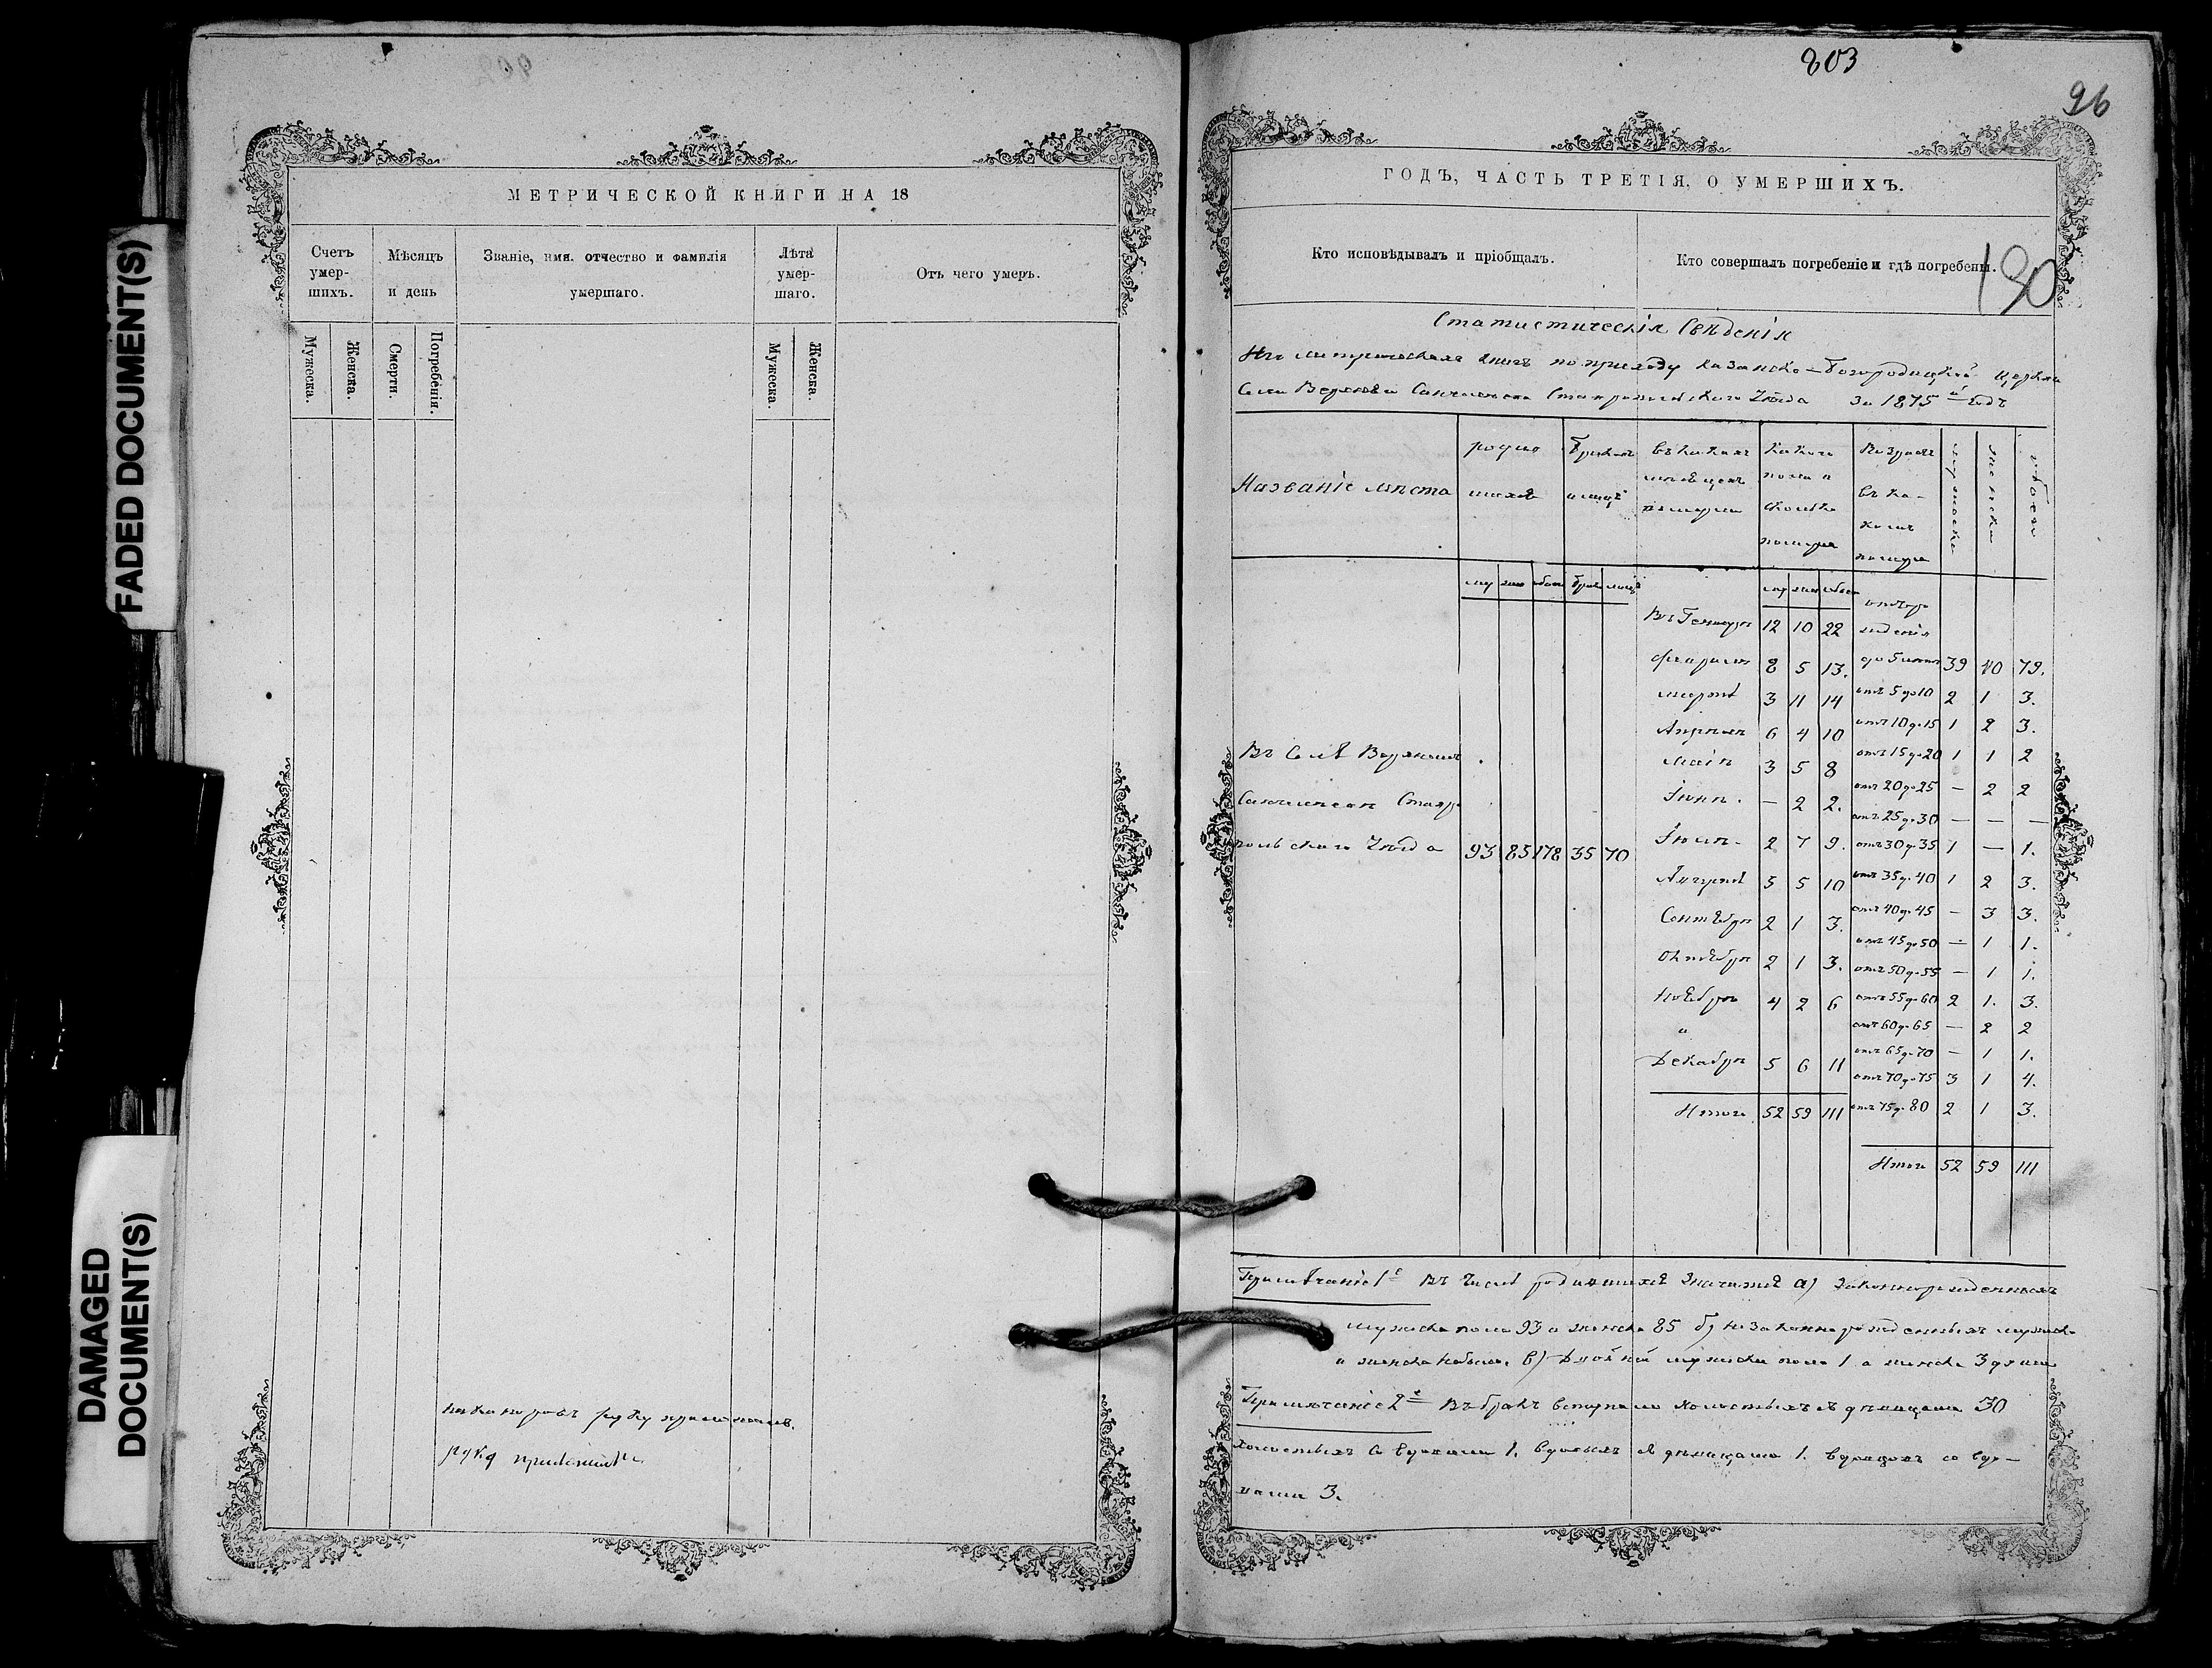 FADED DOCUMENT(S)
DAMAGED
DOCUMENT(S)
МЕТРИЧЕСКОЙ КНИГИ НА 18
Счетъ умер- шихъ.
Мѣсяцъ и день
Званіе, имя. отчество и фамилія умершаго.
Лѣта умер- шаго.
Отъ чего умеръ.
Мужеска.
Женска.
Смерти.
Погребенія.
Мужеска.
Женска.
руку приложилъ.
803
96
ГОДЪ, ЧАСТЬ ТРЕТІЯ, О УМЕРШИХЪ.
Кто исповѣдывалъ и пріобщалъ.
Кто совершалъ погребеніе и гдѣ погребены.
130
Статистическія Свѣденія
Изъ метрическихъ книгъ по приходу Казанско-Богородицкой церкви
Села Верхняго Санчелеева Ставропольскаго Уѣзда За 1875й Годъ
Названіе мѣста
родив шихся
браков и лицъ
въ какихъ мѣсяцахъ померли
какого пола и сколько померло
Возрастъ въ ка- комъ померли
мужеска
женска
обоего
муж жен обоего брак лицъ
муж жен обоего
отъ рождения
Въ Генварѣ 12 10 22
Февралѣ 8 5 13. до 5 лѣтъ 39 40 79.
Мартѣ 3 11 14 отъ 5 до 10 2 1 3.
Апрѣлѣ 6 4 10 отъ 10 до 15 1 2 3.
Маіѣ 3 5 8 отъ 15 до 20 1 1 2
Іюнѣ. — 2 2. отъ 20 до 25 — 2 2
отъ 25 до 30 — — —
Іюлѣ. 2 7 9. отъ 30 до 35 1 — 1.
Августѣ 5 5 10 отъ 35 до 40 1 2 3.
Сентябрѣ 2 1 3. отъ 40 до 45 — 3 3.
отъ 45 до 50 — 1 1.
Октябрѣ 2 1 3. отъ 50 до 55 — 1 1.
Ноябрѣ 4 2 6 отъ 55 до 60 2 1. 3.
и отъ 60 до 65 — 2 2
Декабрѣ 5 6 11 отъ 65 до 70 — 1 1.
отъ 70 до 75 3 1 4.
Итого 52 59 111 отъ 75 до 80 2 1 3.
Итого 52 59 111
Въ Селѣ Верхнемъ
Санчелеевѣ Ставро
польскаго Уѣзда 93 85 178 35 70
Примѣчаніе 1е Въ числѣ родившихся значится а) Законнорожденныхъ
мужска пола 93 а женска 85 б) незаконнорожденныхъ мужска
и женска небыло. в) Двойни мужска пола 1 а женска 3 души
Примѣчаніе 2е Въ бракъ вступило холостыхъ съ дѣвицами 30
холостыхъ со вдовами 1. вдовыхъ съ дѣвицами 1. вдовцовъ со вдо-
вами 3.